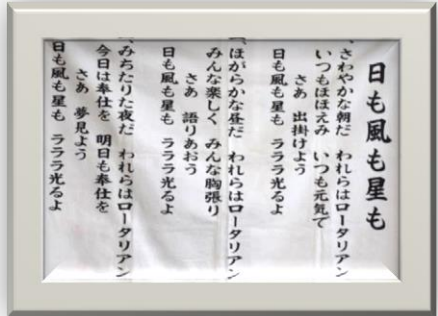 日も風も星も
一、さわやかな朝だ われらはロータリアン
いつもほほえみ いつも元気で
さあ 出掛けよう
日も風も星も ラララ光るよ
ほがらかな昼だ われらはロータリアン
みんな楽しく みんな胸張り
さあ 語りあおう
日も風も星も ラララ光るよ
みちたりた夜だ われらはロータリアン
今日は奉仕を 明日も奉仕を
さあ 夢見よう
日も風も星も ラララ光るよ